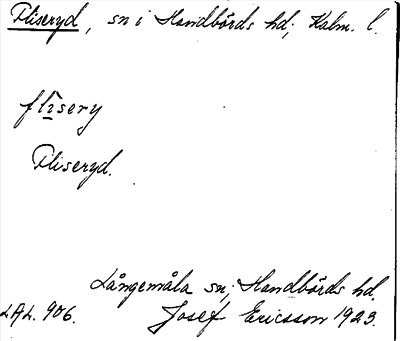 Fliseryd, sn i Handbörds hd; Kalm. l.
flīsery
Fliseryd.
Långemåla sn; Handbörds hd.
LAL. 906. Josef Ericsson 1923.